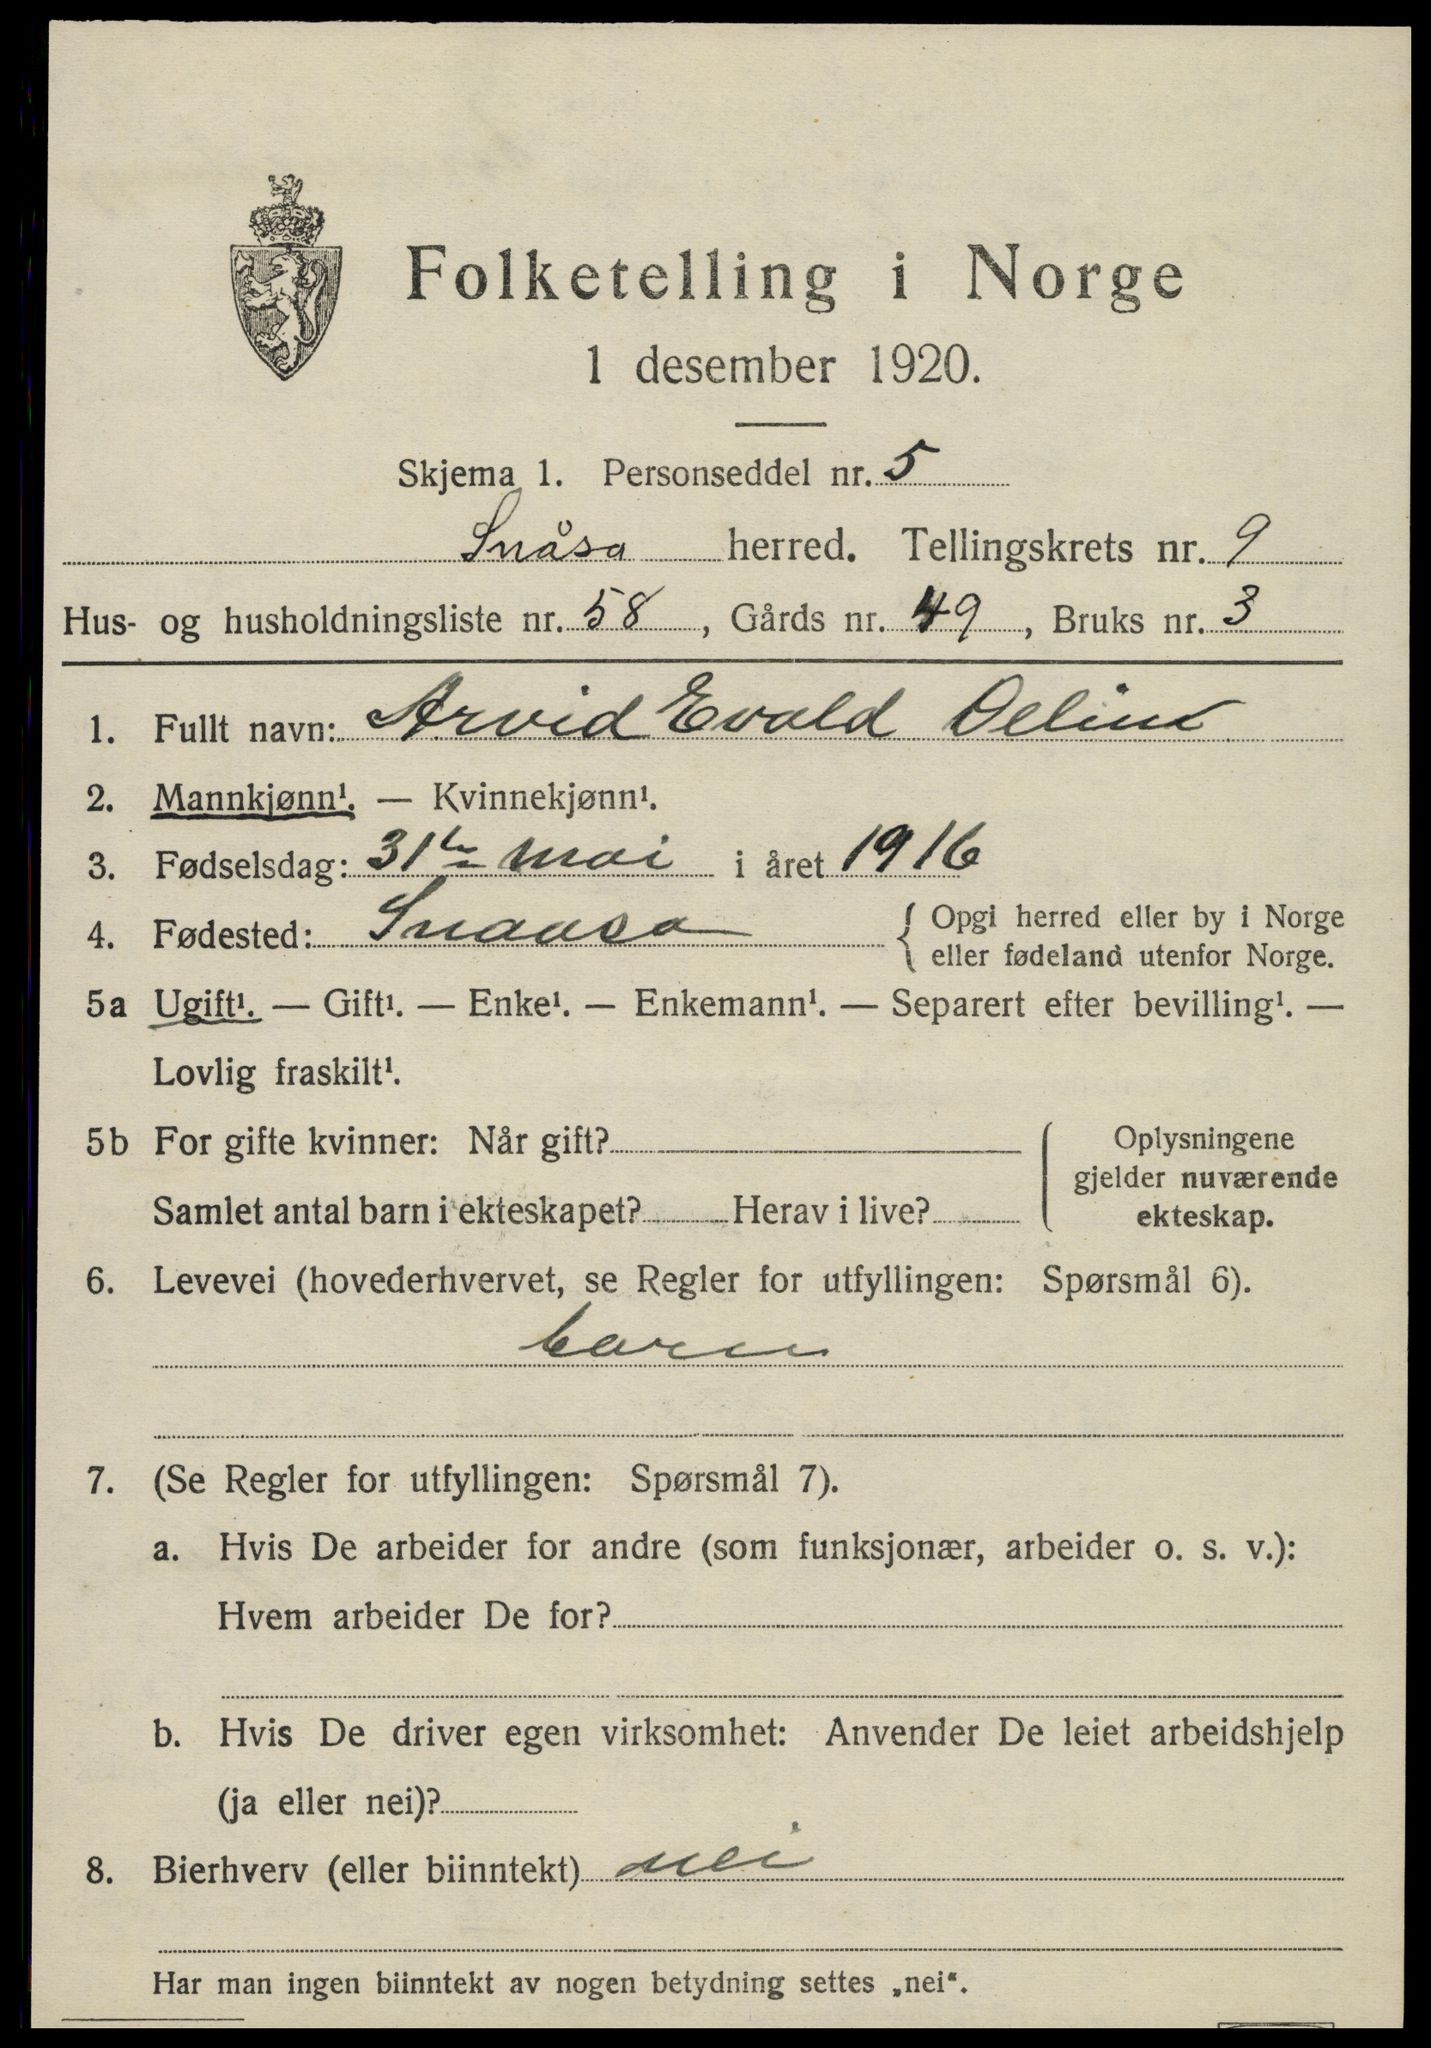 Folketelling i Norge
1 desember 1920.
Skjema 1. Personseddel nr. 5
Snåsa herred. Tellingskrets nr. 9
Hus- og husholdningsliste nr. 58, Gårds nr. 49, Bruks nr. 3
1. Fullt navn: Arvid Evald
2. Mannkjønn¹. — Kvinnekjønn¹.
3. Fødselsdag: 31te mai i året 1916
4. Fødested: Snaasa { Opgi herred eller by i Norge
eller fødeland utenfor Norge.
5a Ugift¹. — Gift¹. — Enke¹. — Enkemann¹. — Separert efter bevilling¹. —
Lovlig fraskilt¹.
5b For gifte kvinner: Når gift?
Samlet antal barn i ekteskapet? Herav i live?
Oplysningene
gjelder nuværende
ekteskap.
6. Levevei (hovederhvervet, se Regler for utfyllingen: Spørsmål 6).
barn
7. (Se Regler for utfyllingen: Spørsmål 7).
a. Hvis De arbeider for andre (som funksjonær, arbeider o. s. v.):
Hvem arbeider De for?
b. Hvis De driver egen virksomhet: Anvender De leiet arbeidshjelp
(ja eller nei)?
8. Bierhverv (eller biinntekt) nei
Har man ingen biinntekt av nogen betydning settes „nei“.